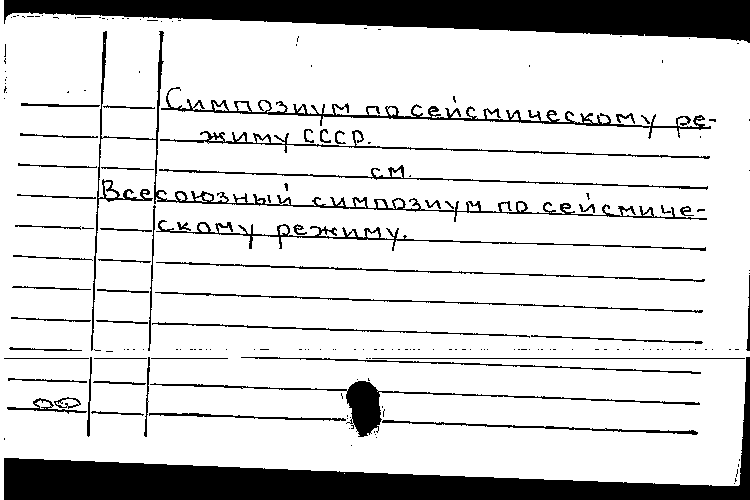 Симпозиум по сейсмическому ре-
жиму СССР.
см.
Всесоюзный симпозиум по сейсмиче-
скому режиму.